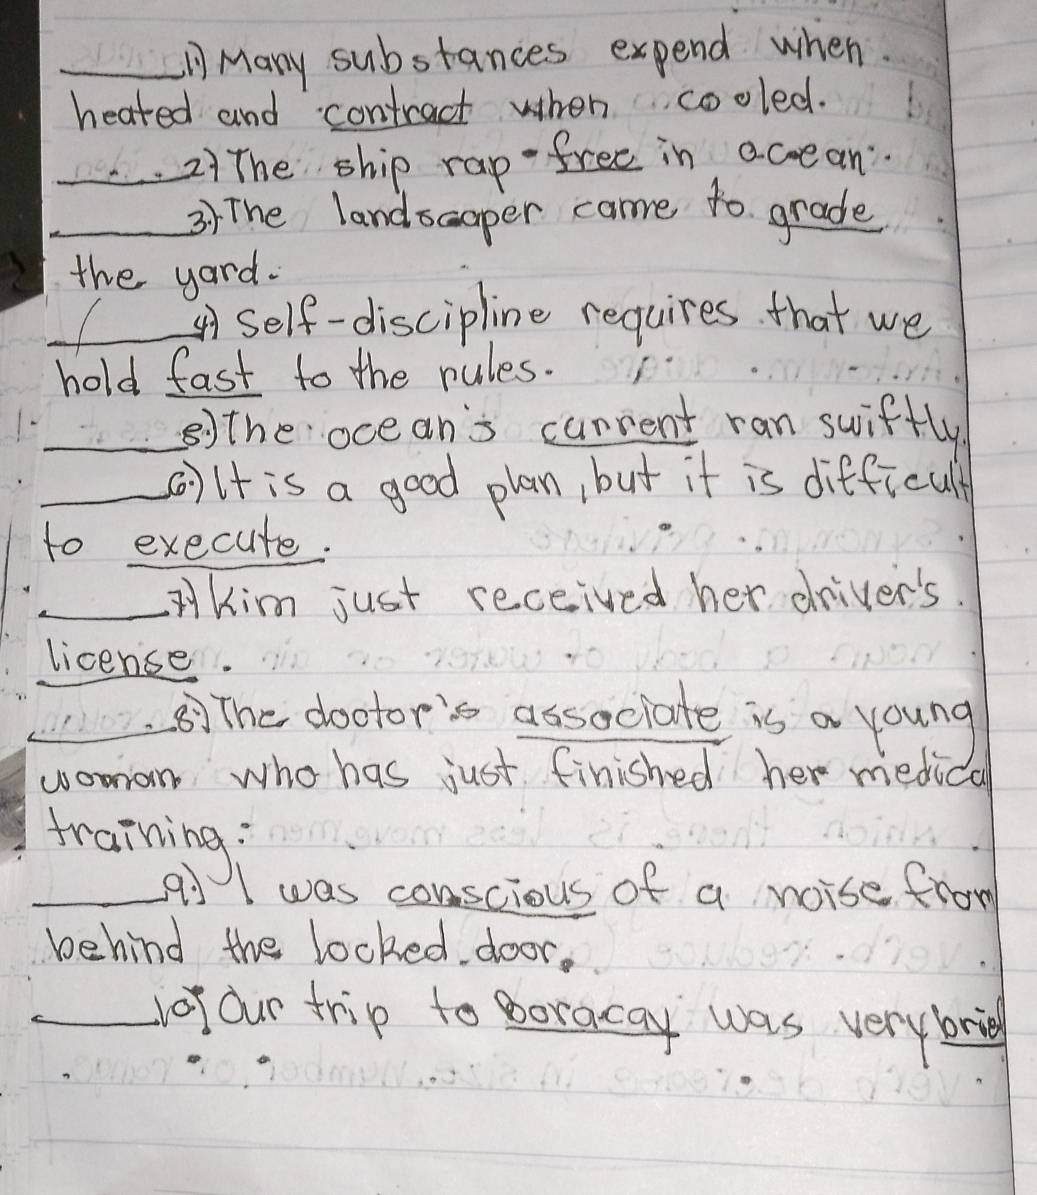 ______1) Many substances expend when
heated and contract when cooled.
______2) The ship rap free in acean.
______3) The landscaper came to grade
the yard.
______4) Self-discipline requires that we
hold fast to the rules.
______5.) The ocean's current ran swiftly.
______6.) It is a good plan, but it is difficult
to execute.
______7) Kim just received her driver's
license.
______8.) The doctor's associate is a young
woman who has just finished her medical
training.
______9.) I was conscious of a noise from
behind the locked door.
______10) Our trip to Boracay was very brief